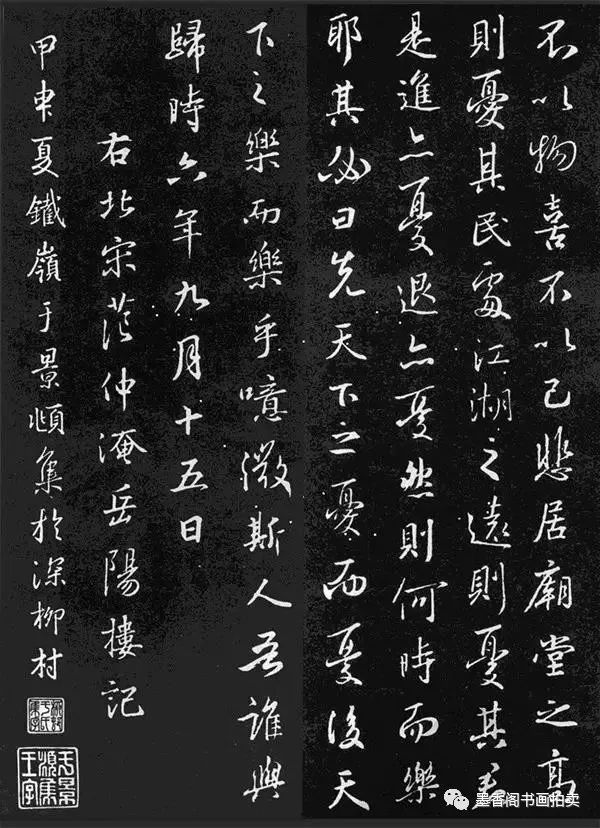 不以物喜不以己悲居廟堂之高
則憂其民處江湖之遠則憂其君
是進亦憂退亦憂然則何時而樂
耶其必曰先天下之憂而憂後天
下之樂而樂乎噫微斯人吾誰與
歸時六年九月十五日
右北宋范仲淹岳陽樓記
甲申夏鐵嶺于景頫集於深柳村
于景頫集王字
墨香阁书画拍卖